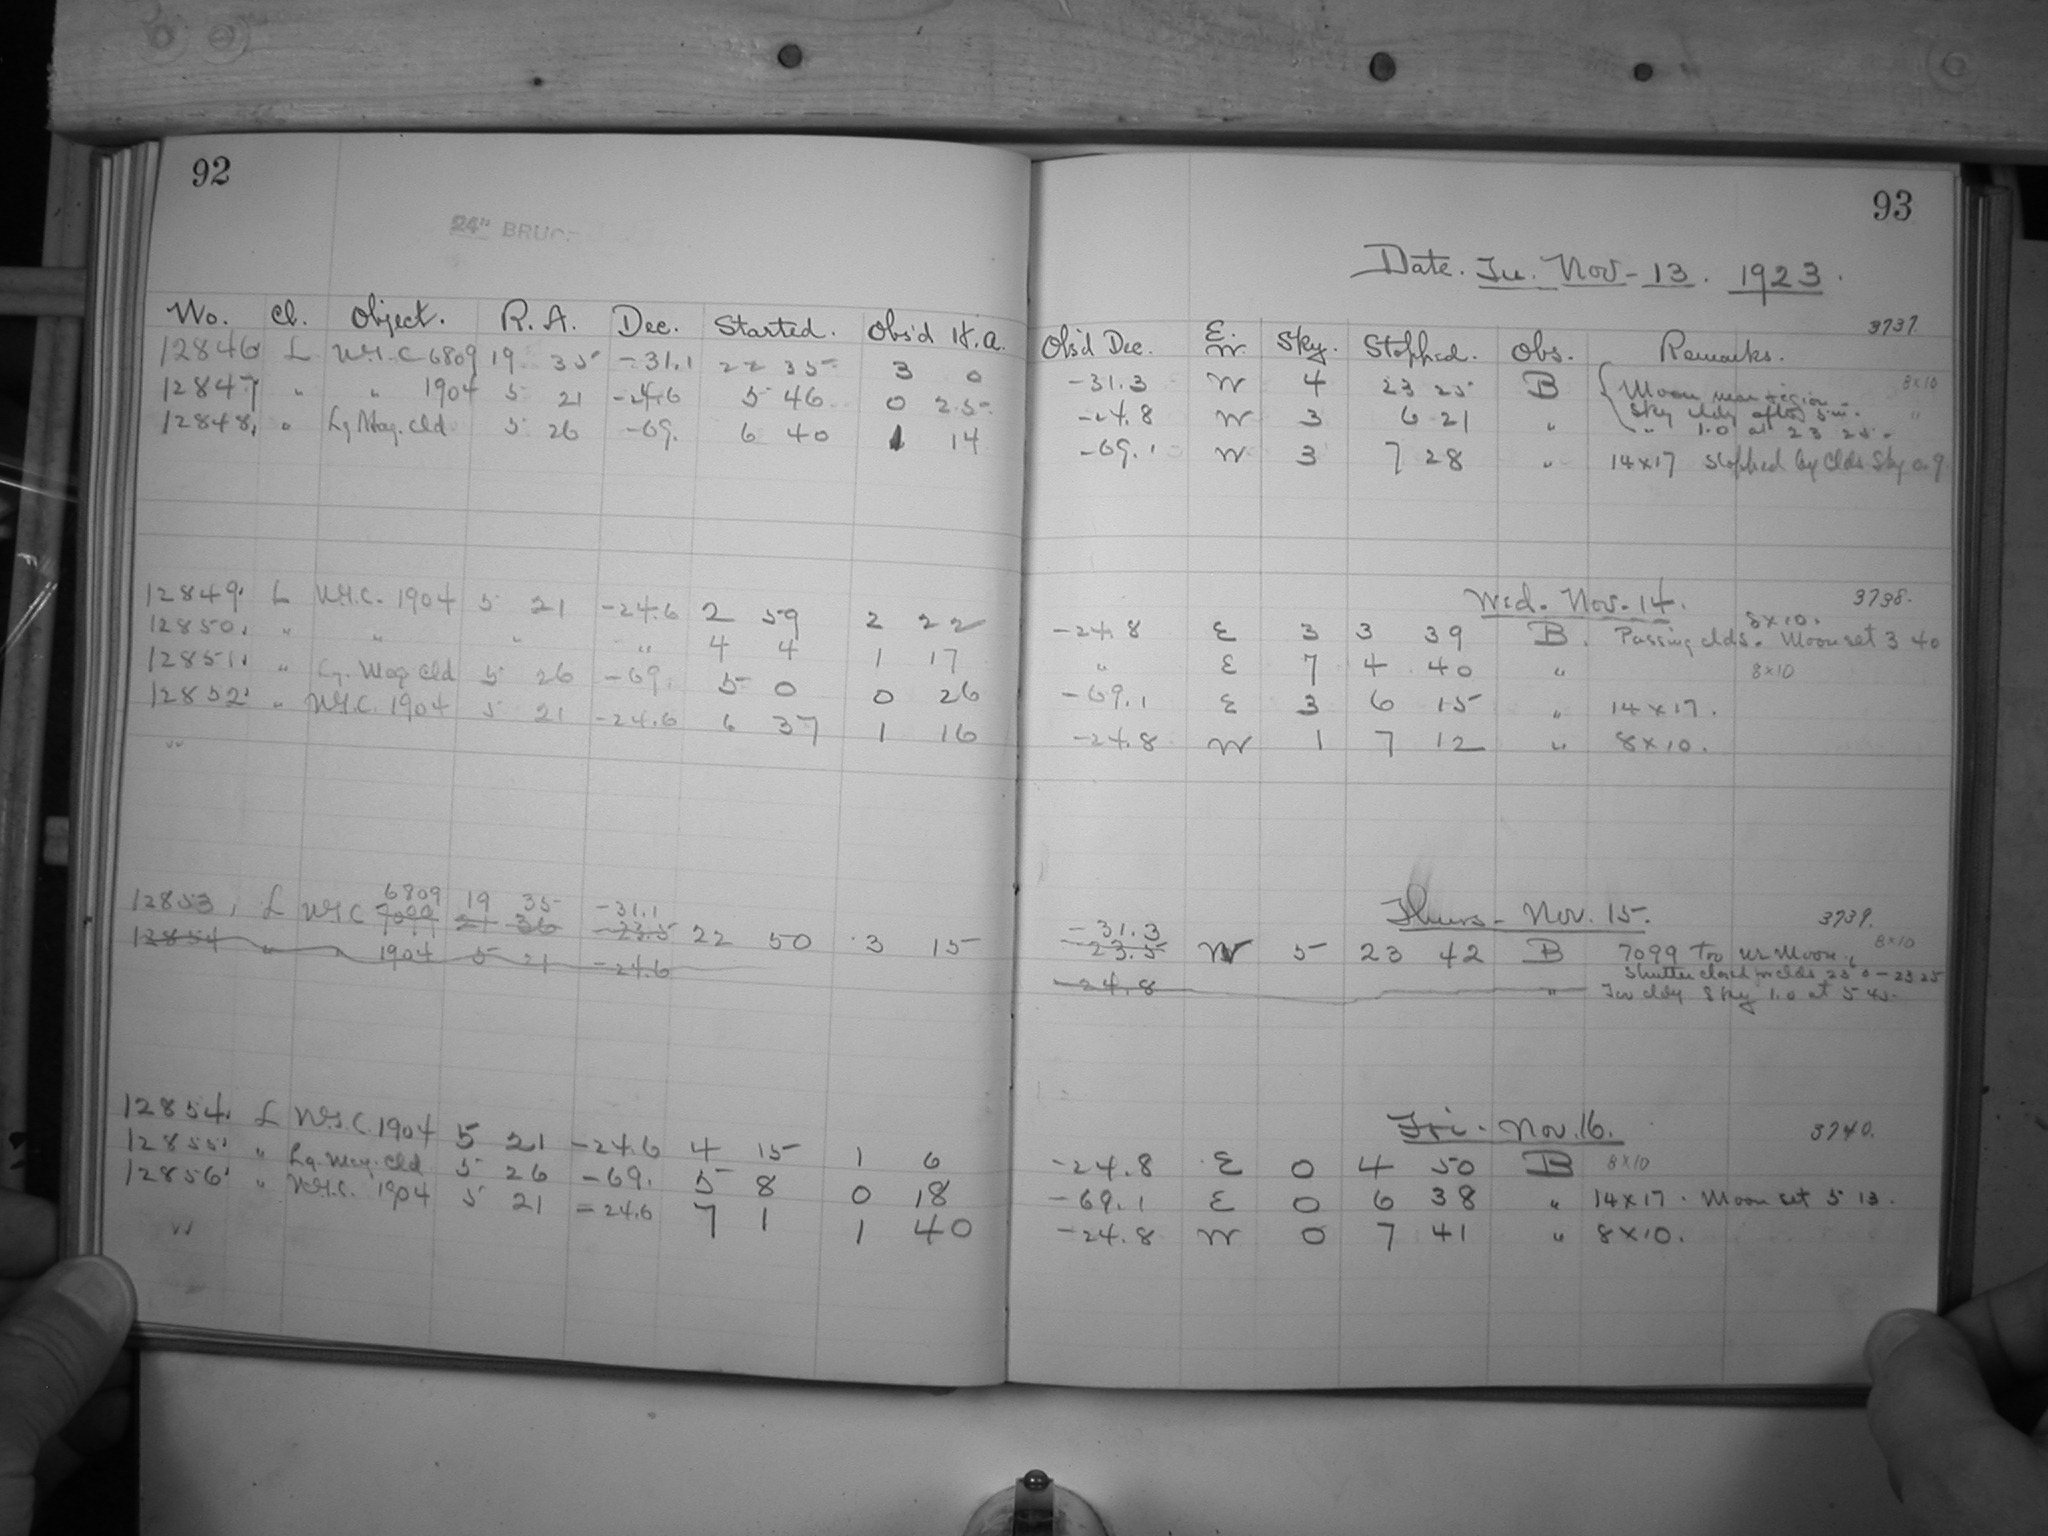 92
24" BRUCE
No. Cl. Object. R. A. Dec. Started. Obs'd H.a.
12846 L N.G.C 6809 19 35 -31.1 22 35 3 0
12847 " " 1904 5 21 -24.6 5 46 0 25
12848 " Lg Mag. Cld 5 26 -69. 6 40 1 14
12849 L N.G.C. 1904 5 21 -24.6 2 59 2 22
12850 " " " " 4 4 1 17
12851 " Lg. Mag Cld 5 26 -69. 5 0 0 26
12852 " N.G.C. 1904 5 21 -24.6 6 37 1 16
"
6809 19 35 -31.1
12853 L N.G.C 7099 21 36 -23.5 22 50 3 15
12854 " 1904 5 21 -24.6
12854 L N.G.C. 1904 5 21 -24.6 4 15 1 6
12855 " Lg. Mag. Cld 5 26 -69. 5 8 0 18
12856 " N.G.C. 1904 5 21 -24.6 7 1 1 40
"
93
Date. Tu. Nov-13. 1923.
3737.
Obs'd Dec. E. W. Sky. Stopped. Obs. Remarks.
-31.3 W 4 23 25 B Moon near region 8x10
-24.8 W 3 6 21 " Sky cldy after "
" 1.0 at 23 25.
-69.1 W 3 7 28 " 14x17 Stopped by Clds Sky 0.9
Wed. Nov. 14. 3738.
8x10.
-24.8 E 3 3 39 B. Passing clds. Moon set 3 40
" E 7 4 40 " 8x10
-69.1 E 3 6 15 " 14x17.
-24.8 W 1 7 12 " 8x10.
Thurs- Nov. 15. 3739.
-31.3 8x10
-23.5 W 5 23 42 B 7099 Too nr Moon.
Shutter closed for clds 23 0-23 25
-24.8 " Too cldy Sky 1.0 at 5 45.
Fri. Nov. 16. 3740.
-24.8 E 0 4 50 B 8x10
-69.1 E 0 6 38 " 14x17. Moon set 5 13.
-24.8 W 0 7 41 " 8x10.